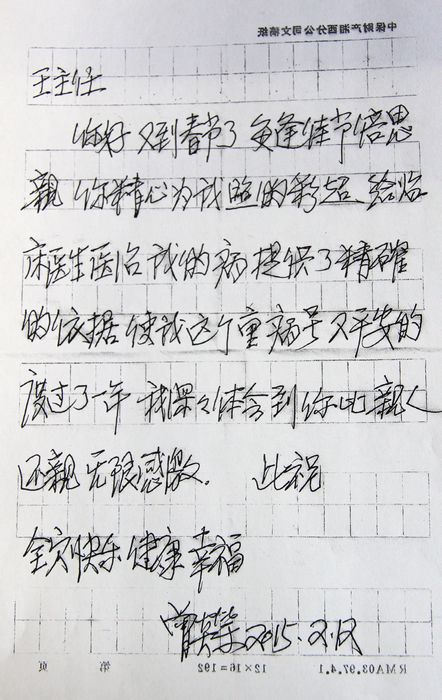 中保财产湘西分公司文稿纸
王主任
你好 又到春节了 真逢佳节倍思
亲 你精心为我照的彩超 给临
床医生医治我的病提供了精确
的依据 使我这个重病号又平安的
度过了一年 我深深体会到你比亲人
还亲 无限感激. 此祝
全家快乐 健康 幸福
曾 2015.2.12
RMA03.97.4.1 12×16=192 第 页